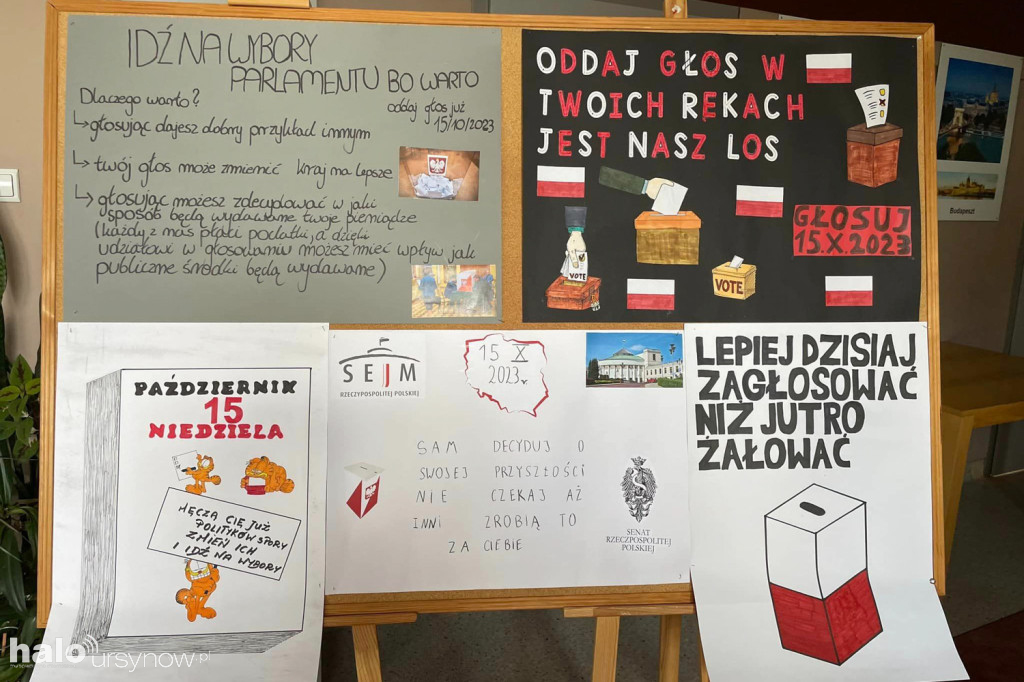 IDŹ NA WYBORY
PARLAMENTU BO WARTO
oddaj głos już
15/10/2023
Dlaczego warto?
głosując dajesz dobry przykład innym
twój głos może zmienić kraj na lepsze
głosując możesz zdecydować w jaki
sposób będą wydawane twoje pieniądze
(każdy z nas płaci podatki, a dzięki
udziałowi w głosowaniu możesz mieć wpływ jak
publiczne środki będą wydawane)
ODDAJ GŁOS W
TWOICH RĘKACH
JEST NASZ LOS
GŁOSUJ
15.X.2023
VOTE
VOTE
Budapeszt
PAŹDZIERNIK
15
NIEDZIELA
MĘCZĄ CIĘ JUŻ
POLITYKÓW SPORY
ZMIEŃ ICH
I IDŹ NA WYBORY
SEJM
RZECZYPOSPOLITEJ POLSKIEJ
15 X
2023r.
SAM DECYDUJ O
SWOJEJ PRZYSZŁOŚCI
NIE CZEKAJ AŻ
INNI ZROBIĄ TO
ZA CIEBIE
SENAT
RZECZYPOSPOLITEJ
POLSKIEJ
LEPIEJ DZISIAJ
ZAGŁOSOWAĆ
NIŻ JUTRO
ŻAŁOWAĆ
halo
ursynow.pl